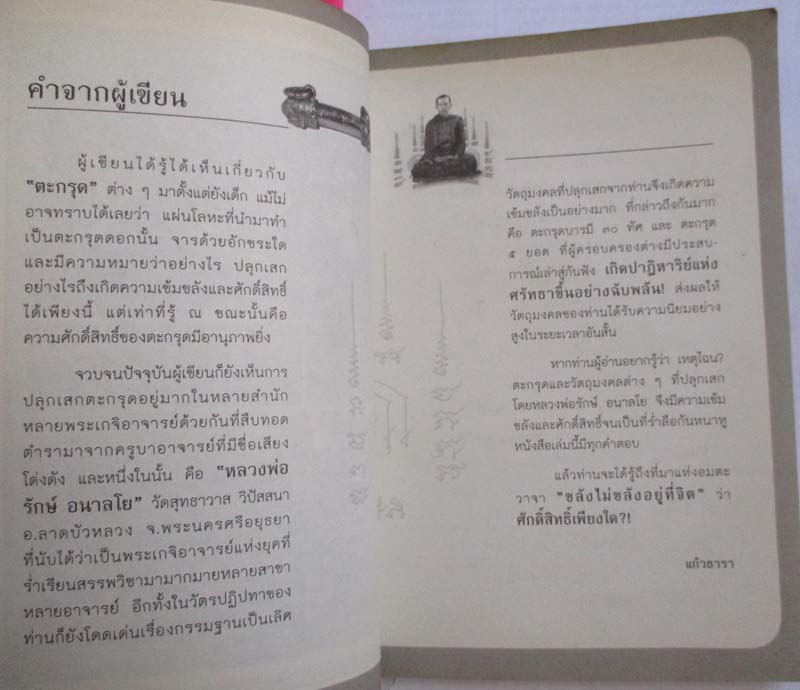 คำจากผู้เขียน
ผู้เขียนได้รู้ได้เห็นเกี่ยวกับ
"ตะกรุด" ต่าง ๆ มาตั้งแต่ยังเด็ก แม้ไม่
อาจทราบได้เลยว่า แผ่นโลหะที่นำมาทำ
เป็นตะกรุดดอกนั้น จารด้วยอักขระใด
และมีความหมายว่าอย่างไร ปลุกเสก
อย่างไรถึงเกิดความเข้มขลังและศักดิ์สิทธิ์
ได้เพียงนี้ แต่เท่าที่รู้ ณ ขณะนั้นคือ
ความศักดิ์สิทธิ์ของตะกรุดมีอานุภาพยิ่ง
จวบจนปัจจุบันผู้เขียนก็ยังเห็นการ
ปลุกเสกตะกรุดอยู่มากในหลายสำนัก
หลายพระเกจิอาจารย์ด้วยกันที่สืบทอด
ตำรามาจากครูบาอาจารย์ที่มีชื่อเสียง
โด่งดัง และหนึ่งในนั้น คือ "หลวงพ่อ
รักษ์ อนาลโย" วัดสุทธาวาส วิปัสสนา
อ.ลาดบัวหลวง จ.พระนครศรีอยุธยา
ที่นับได้ว่าเป็นพระเกจิอาจารย์แห่งยุคที่
ร่ำเรียนสรรพวิชามามากมายหลายสาขา
หลายอาจารย์ อีกทั้งในวัตรปฏิปทาของ
ท่านก็ยังโดดเด่นเรื่องกรรมฐานเป็นเลิศ
วัตถุมงคลที่ปลุกเสกจากท่านจึงเกิดความ
เข้มขลังเป็นอย่างมาก ที่กล่าวถึงกันมาก
คือ ตะกรุดบารมี ๓๐ ทัศ และ ตะกรุด
๕ ยอด ที่ผู้ครอบครองต่างมีประสบ-
การณ์เล่าสู่กันฟัง เกิดปาฏิหาริย์แห่ง
ศรัทธาขึ้นอย่างฉับพลัน! ส่งผลให้
วัตถุมงคลของท่านได้รับความนิยมอย่าง
สูงในระยะเวลาอันสั้น
หากท่านผู้อ่านอยากรู้ว่า เหตุไฉน?
ตะกรุดและวัตถุมงคลต่าง ๆ ที่ปลุกเสก
โดยหลวงพ่อรักษ์ อนาลโย จึงมีความเข้ม
ขลังและศักดิ์สิทธิ์จนเป็นที่ร่ำลือกันหนาหู
หนังสือเล่มนี้มีทุกคำตอบ
แล้วท่านจะได้รู้ถึงที่มาแห่งอมตะ
วาจา "ขลังไม่ขลังอยู่ที่จิต" ว่า
ศักดิ์สิทธิ์เพียงใด?!
แก้วธารา